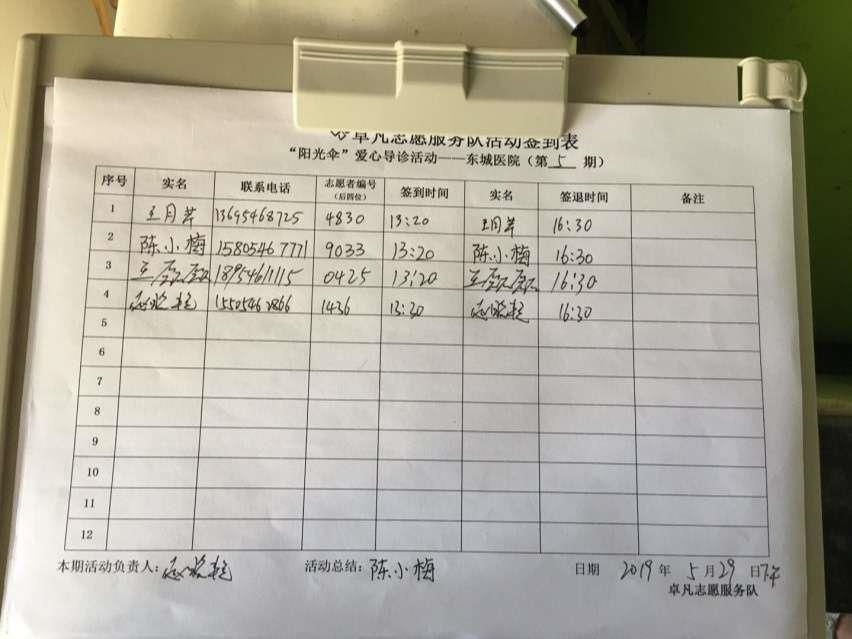 卓凡志愿服务队活动签到表
“阳光伞”爱心导诊活动——东城医院（第 5 期）
序号 实名 联系电话 志愿者编号（后四位） 签到时间 实名 签退时间 备注
1 王月 13695468725 4830 13:20 王月 16:30
2 陈小梅 15805467771 9033 13:20 陈小梅 16:30
3 18954611115 0425 13:20 16:30
4 1436 13:30 16:30
5
6
7
8
9
10
11
12
本期活动负责人： 活动总结：陈小梅 日期 2019 年 5 月 29 日下午
卓凡志愿服务队